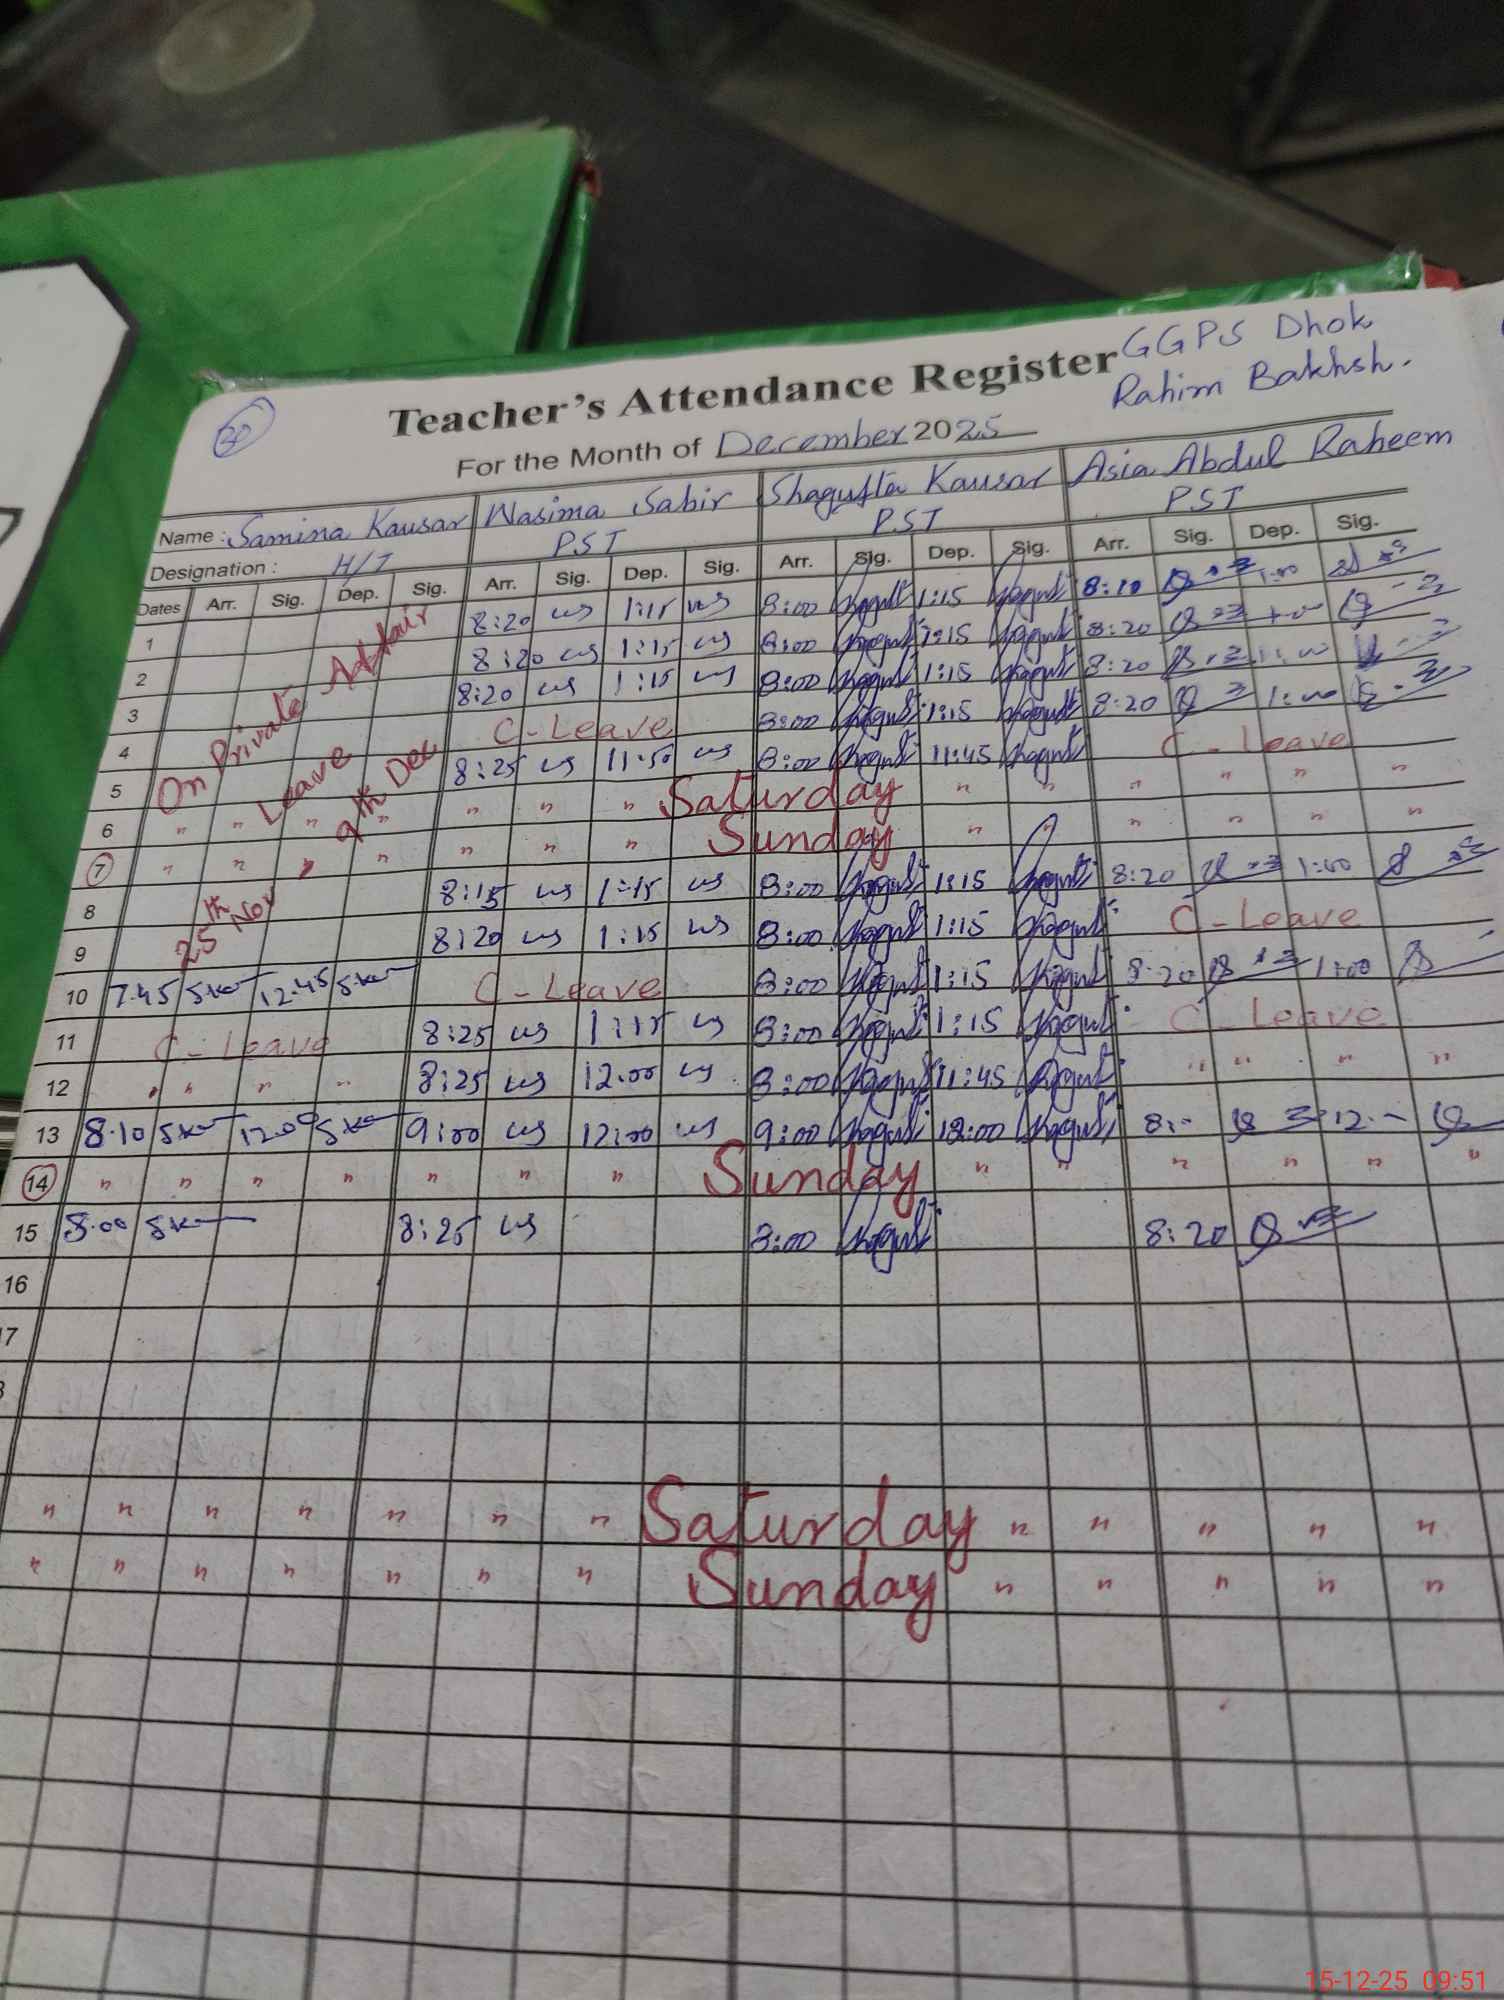 GGPS Dhok
Rahim Bakhsh.
20
Teacher's Attendance Register
For the Month of December 2025
Name : Samina Kausar Wasima Sabir Shagufta Kausar Asia Abdul Raheem
Designation : H/T PST PST PST
Dates Arr. Sig. Dep. Sig. Arr. Sig. Dep. Sig. Arr. Sig. Dep. Sig. Arr. Sig. Dep. Sig.
On Private Affair
Leave
25th Nov 9th Dec
1 8:20 ws 1:15 ws 8:00 1:15 8:20 1:00
2 8:20 ws 1:15 ws 8:00 1:15 8:20 1:00
3 8:20 ws 1:15 ws 8:00 1:15 8:20 1:00
4 C-Leave 8:00 1:15 8:20 1:00
5 8:25 ws 11:50 ws 8:00 11:45 C-Leave
6 " " " " " " " Saturday " " " " " "
7 " " " " " " " Sunday " " " " " "
8 8:15 ws 1:15 ws 8:00 1:15 8:20 1:00
9 8:20 ws 1:15 ws 8:00 1:15 C-Leave
10 7.45 12.45 C-Leave 8:00 1:15 8:20 1:00
11 C-Leave 8:25 ws 1:15 ws 8:00 1:15 C-Leave
12 " " " " 8:25 ws 12.00 ws 8:00 11:45 " " " "
13 8.10 12.00 9:00 ws 12:00 ws 9:00 12:00 8:- 12.-
14 " " " " " " " Sunday " " " " " "
15 8.00 8:25 ws 8:00 8:20
16
7
" " " " " " " Saturday " " " " "
" " " " " " " Sunday " " " " "
15-12-25 09:51